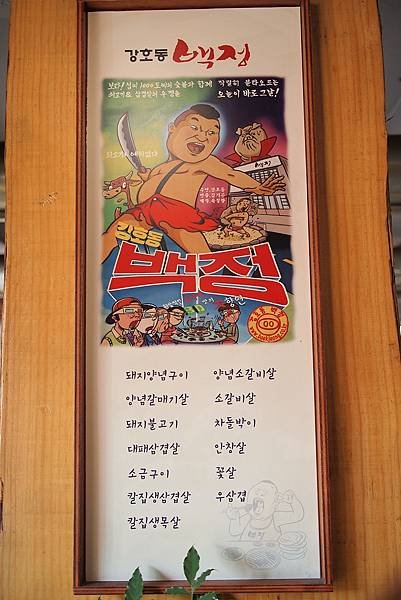 강호동 백정
보라! 섭씨 1000도씨의 숯불과 함께
적열히 불타오르는
오늘이 바로 그날!
강호동
백정
돼지양념구이
양념갈매기살
돼지불고기
대패삼겹살
소금구이
칼집생삼겹살
칼집생목살
양념소갈비살
소갈비살
차돌박이
안창살
꽃살
우삼겹
백정